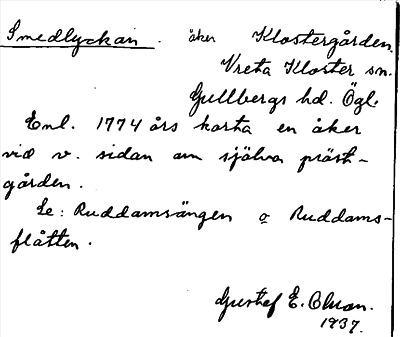 Smedlyckan. åker Klostergården
Vreta Kloster sn.
Gullbergs hd. Ögl.
Enl. 1774 års karta en åker
vid v. sidan om själva präst-
gården.
Se: Ruddamsängen o Ruddams-
flätten.
Gustaf E. Olson.
1937.